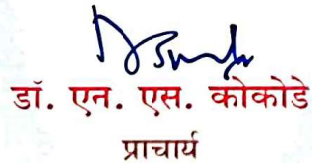 डॉ. एन. एस. कोकोडे
प्राचार्य